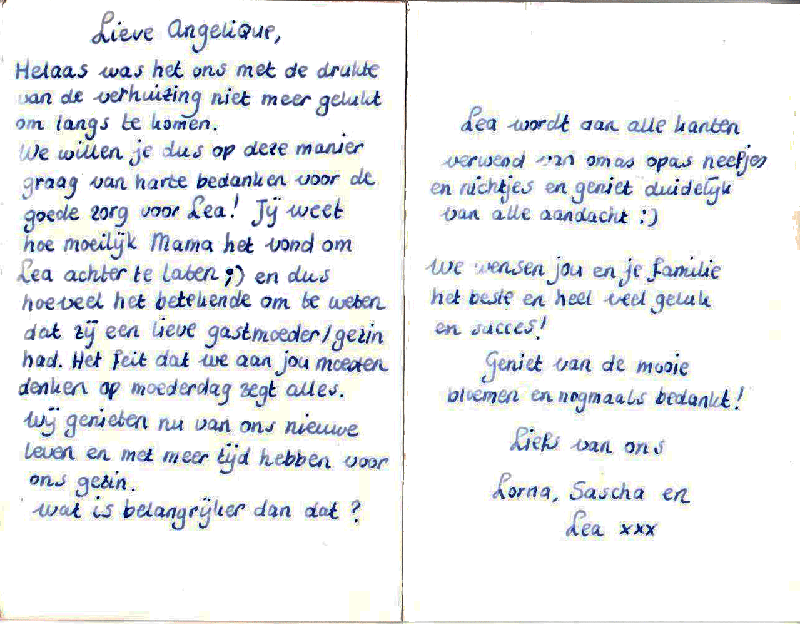 Lieve Angelique,
Helaas was het ons met de drukte
van de verhuizing niet meer gelukt
om langs te komen.
We willen je dus op deze manier
graag van harte bedanken voor de
goede zorg voor Lea! Jij weet
hoe moeilijk Mama het vond om
Lea achter te laten ;) en dus
hoeveel het betekende om te weten
dat zij een lieve gastmoeder/gezin
had. Het feit dat we aan jou moeten
denken op moederdag zegt alles.
Wij genieten nu van ons nieuwe
leven en met meer tijd hebben voor
ons gezin.
wat is belangrijker dan dat ?
Lea wordt aan alle kanten
verwend van omas opas neefjes
en nichtjes en geniet duidelijk
van alle aandacht :)
We wensen jou en je familie
het beste en heel veel geluk
en succes!
Geniet van de mooie
bloemen en nogmaals bedankt!
Liefs van ons
Lorna, Sascha en
Lea xxx